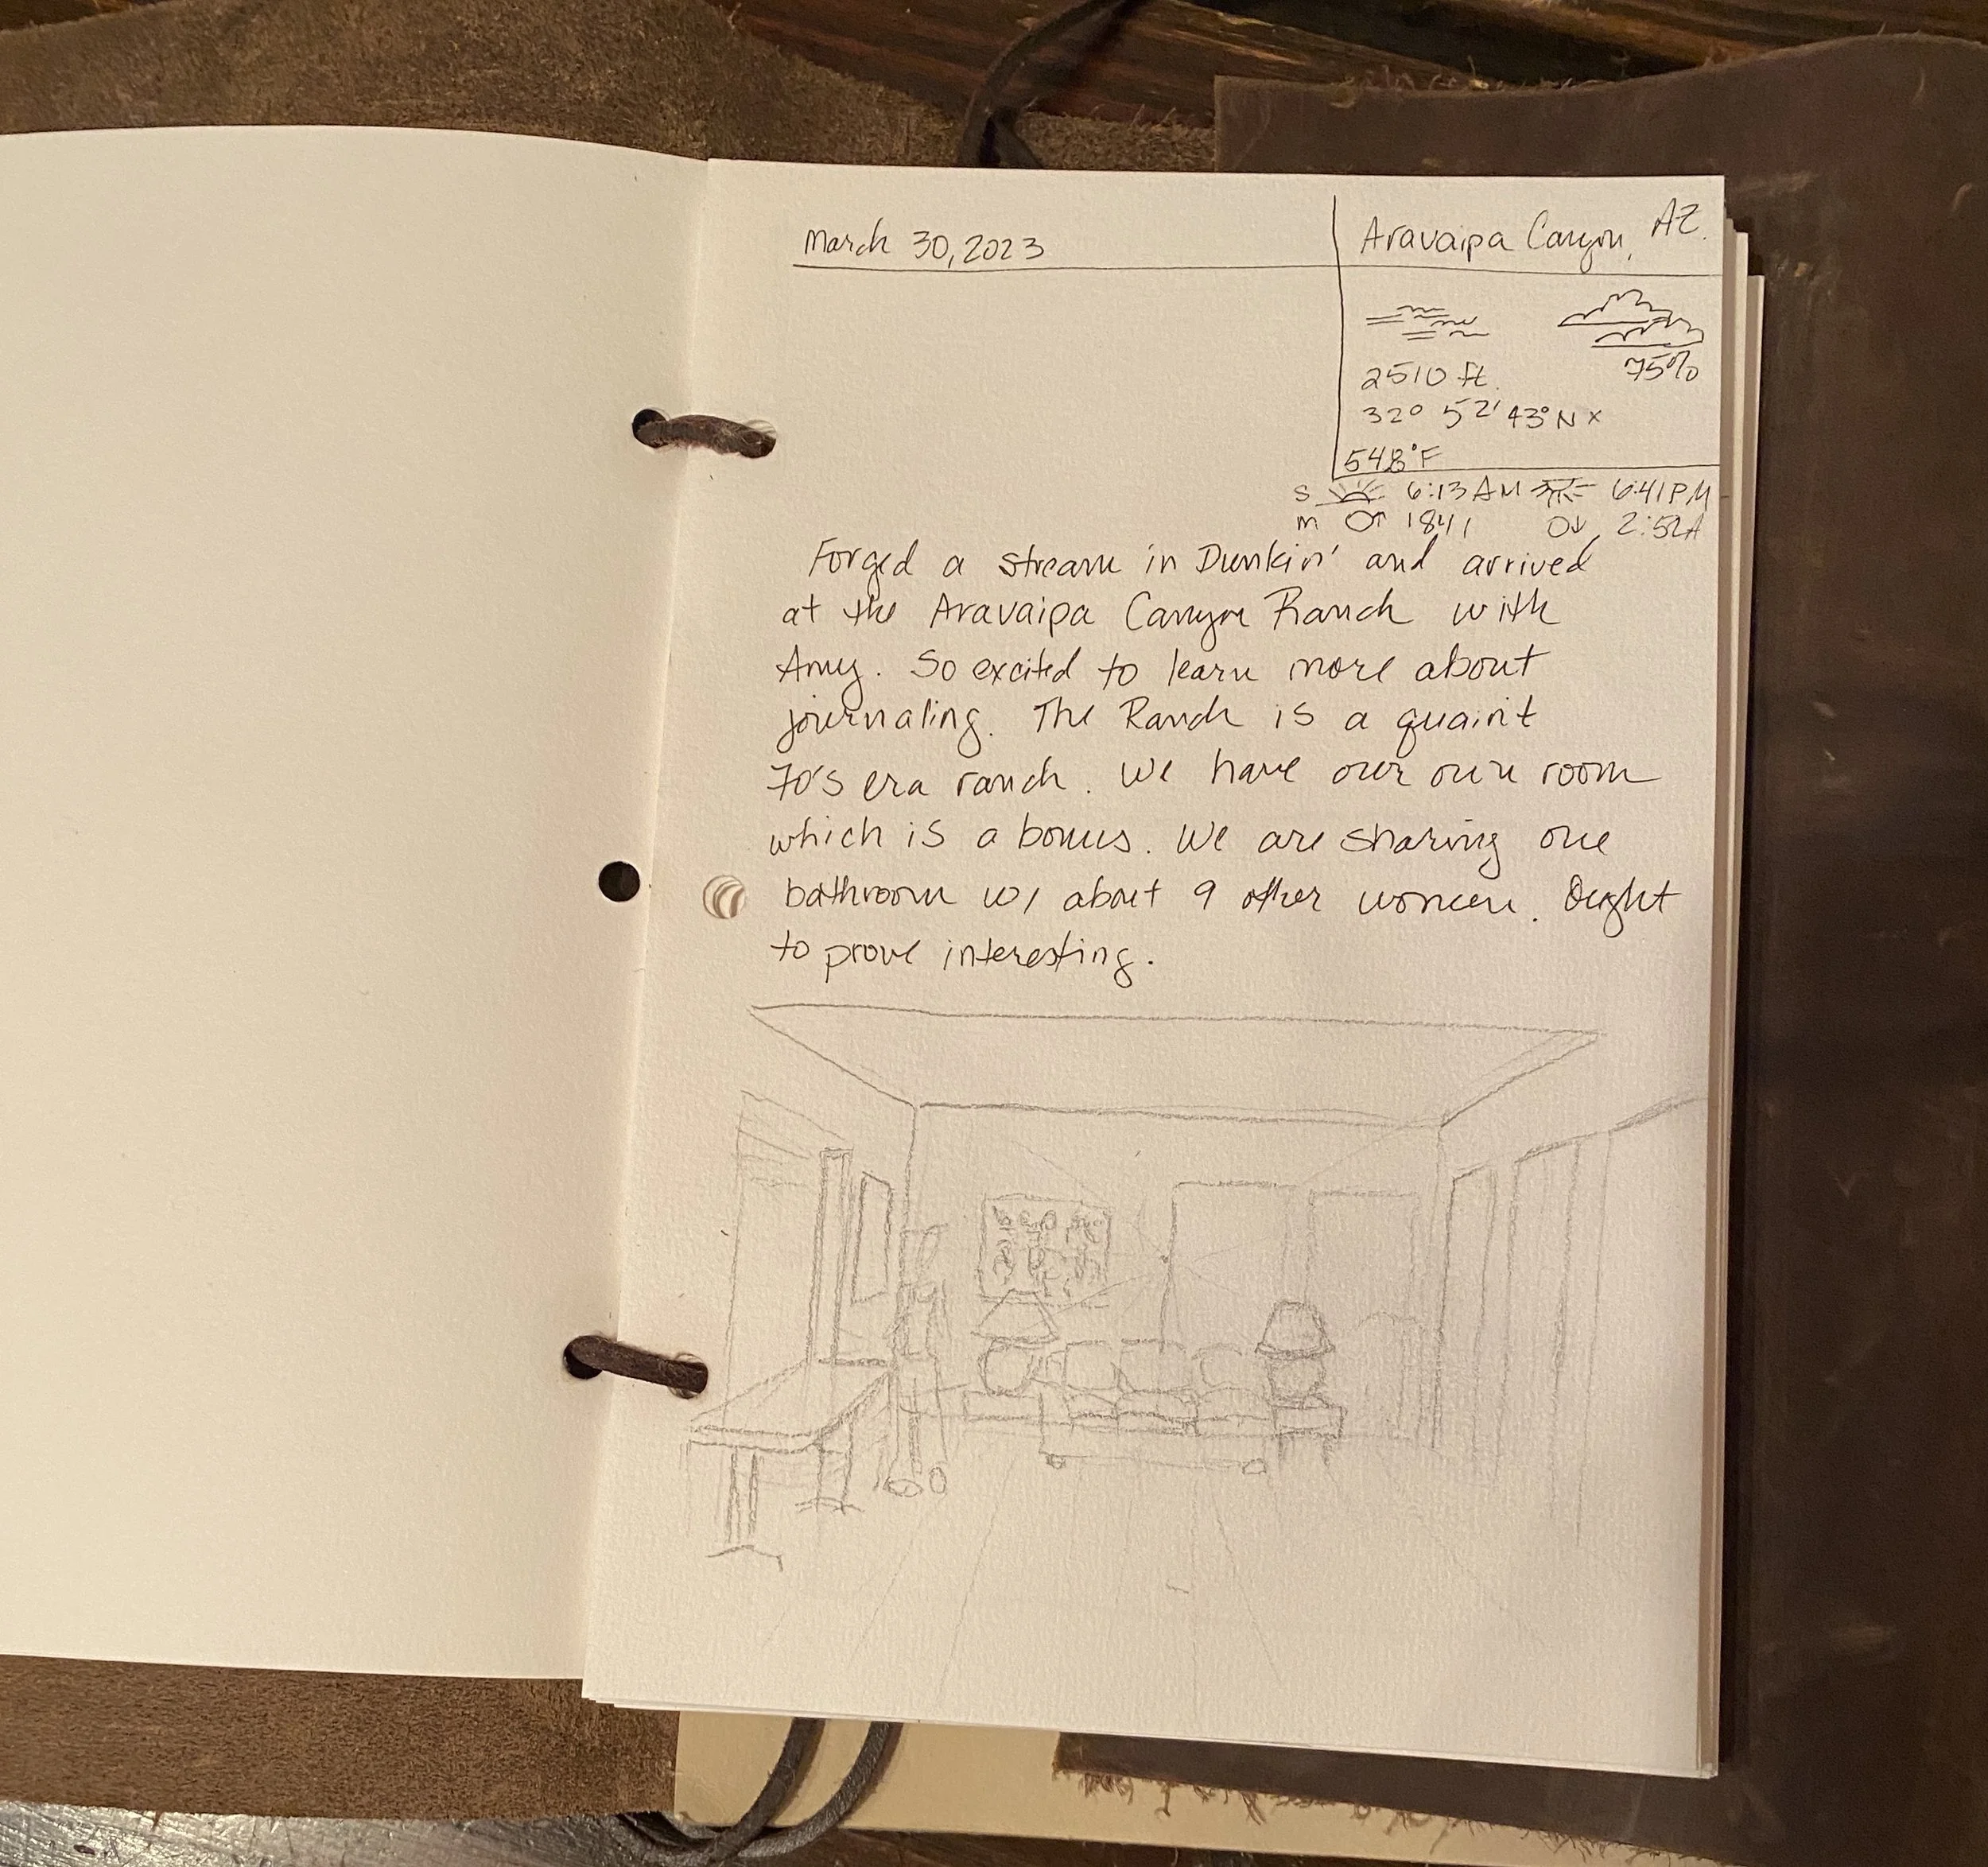 March 30, 2023
Aravaipa Canyon, AZ.
75%
2510 ft.
32° 52' 43° N x
548°F
S 6:13 AM 6:41 PM
m 1841 2:52A
Forged a stream in Dunkin' and arrived
at the Aravaipa Canyon Ranch with
Amy. So excited to learn more about
journaling. The Ranch is a quaint
70's era ranch. We have our own room
which is a bonus. We are sharing one
bathroom w/ about 9 other women. Ought
to prove interesting.